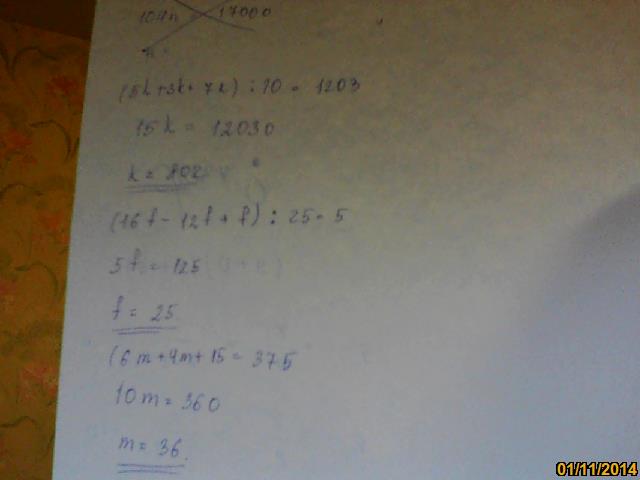 104n = 17000
n =
(5k+3k+7k) : 10 = 1203
15k = 12030
k = 802
(16f - 12f + f) : 25 = 5
5f = 125
f = 25
(6m+4m+15 = 375
10m = 360
m = 36.
01/11/2014